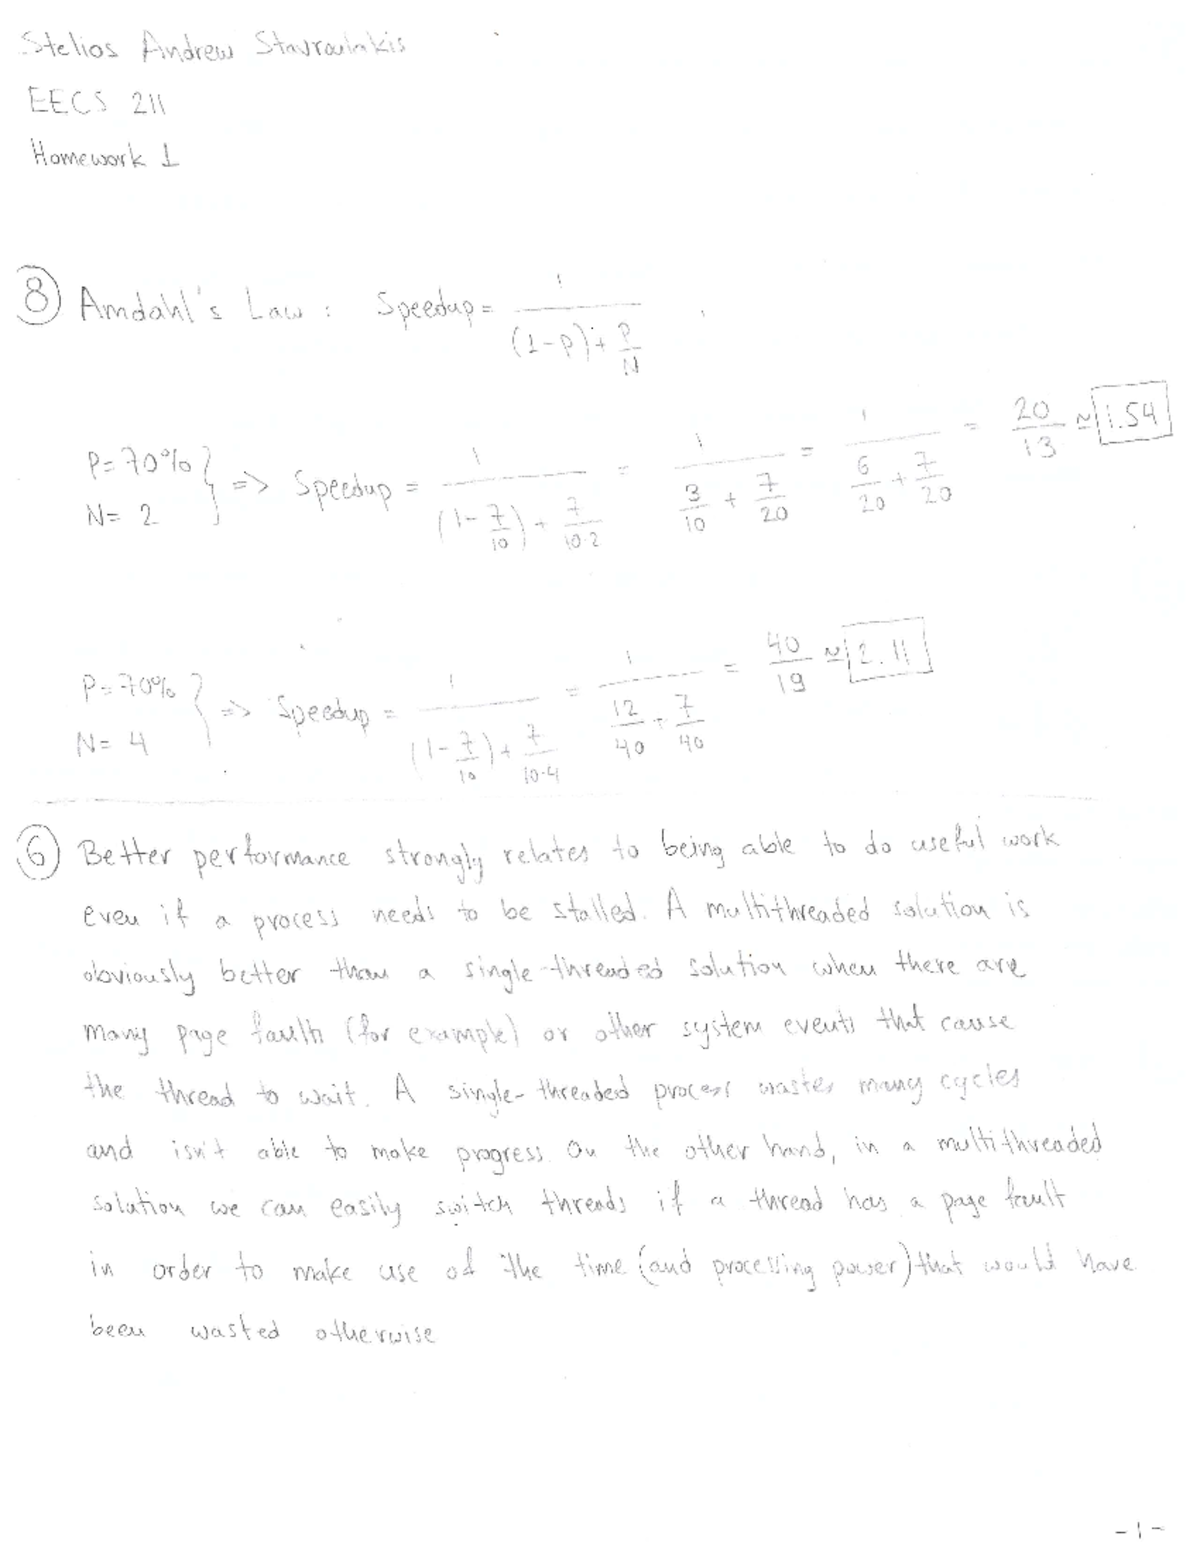 Stelios Andrew Stavroulakis
EECS 211
Homework 1
⑧ Amdahl's Law : Speedup = 1 / ((1-P) + P/N)
P=70% N= 2 } => Speedup = 1 / ((1-7/10) + 7/(10·2)) = 1 / (3/10 + 7/20) = 1 / (6/20 + 7/20) = 20/13 ≃ 1.54
P=70% N= 4 } => Speedup = 1 / ((1-7/10) + 7/(10·4)) = 1 / (12/40 + 7/40) = 40/19 ≃ 2.11
⑥ Better performance strongly relates to being able to do useful work
even if a process needs to be stalled. A multithreaded solution is
obviously better than a single-threaded solution when there are
many page faults (for example) or other system events that cause
the thread to wait. A single-threaded process wastes many cycles
and isn't able to make progress. On the other hand, in a multithreaded
solution we can easily switch threads if a thread has a page fault
in order to make use of the time (and processing power) that would have
been wasted otherwise
-1-